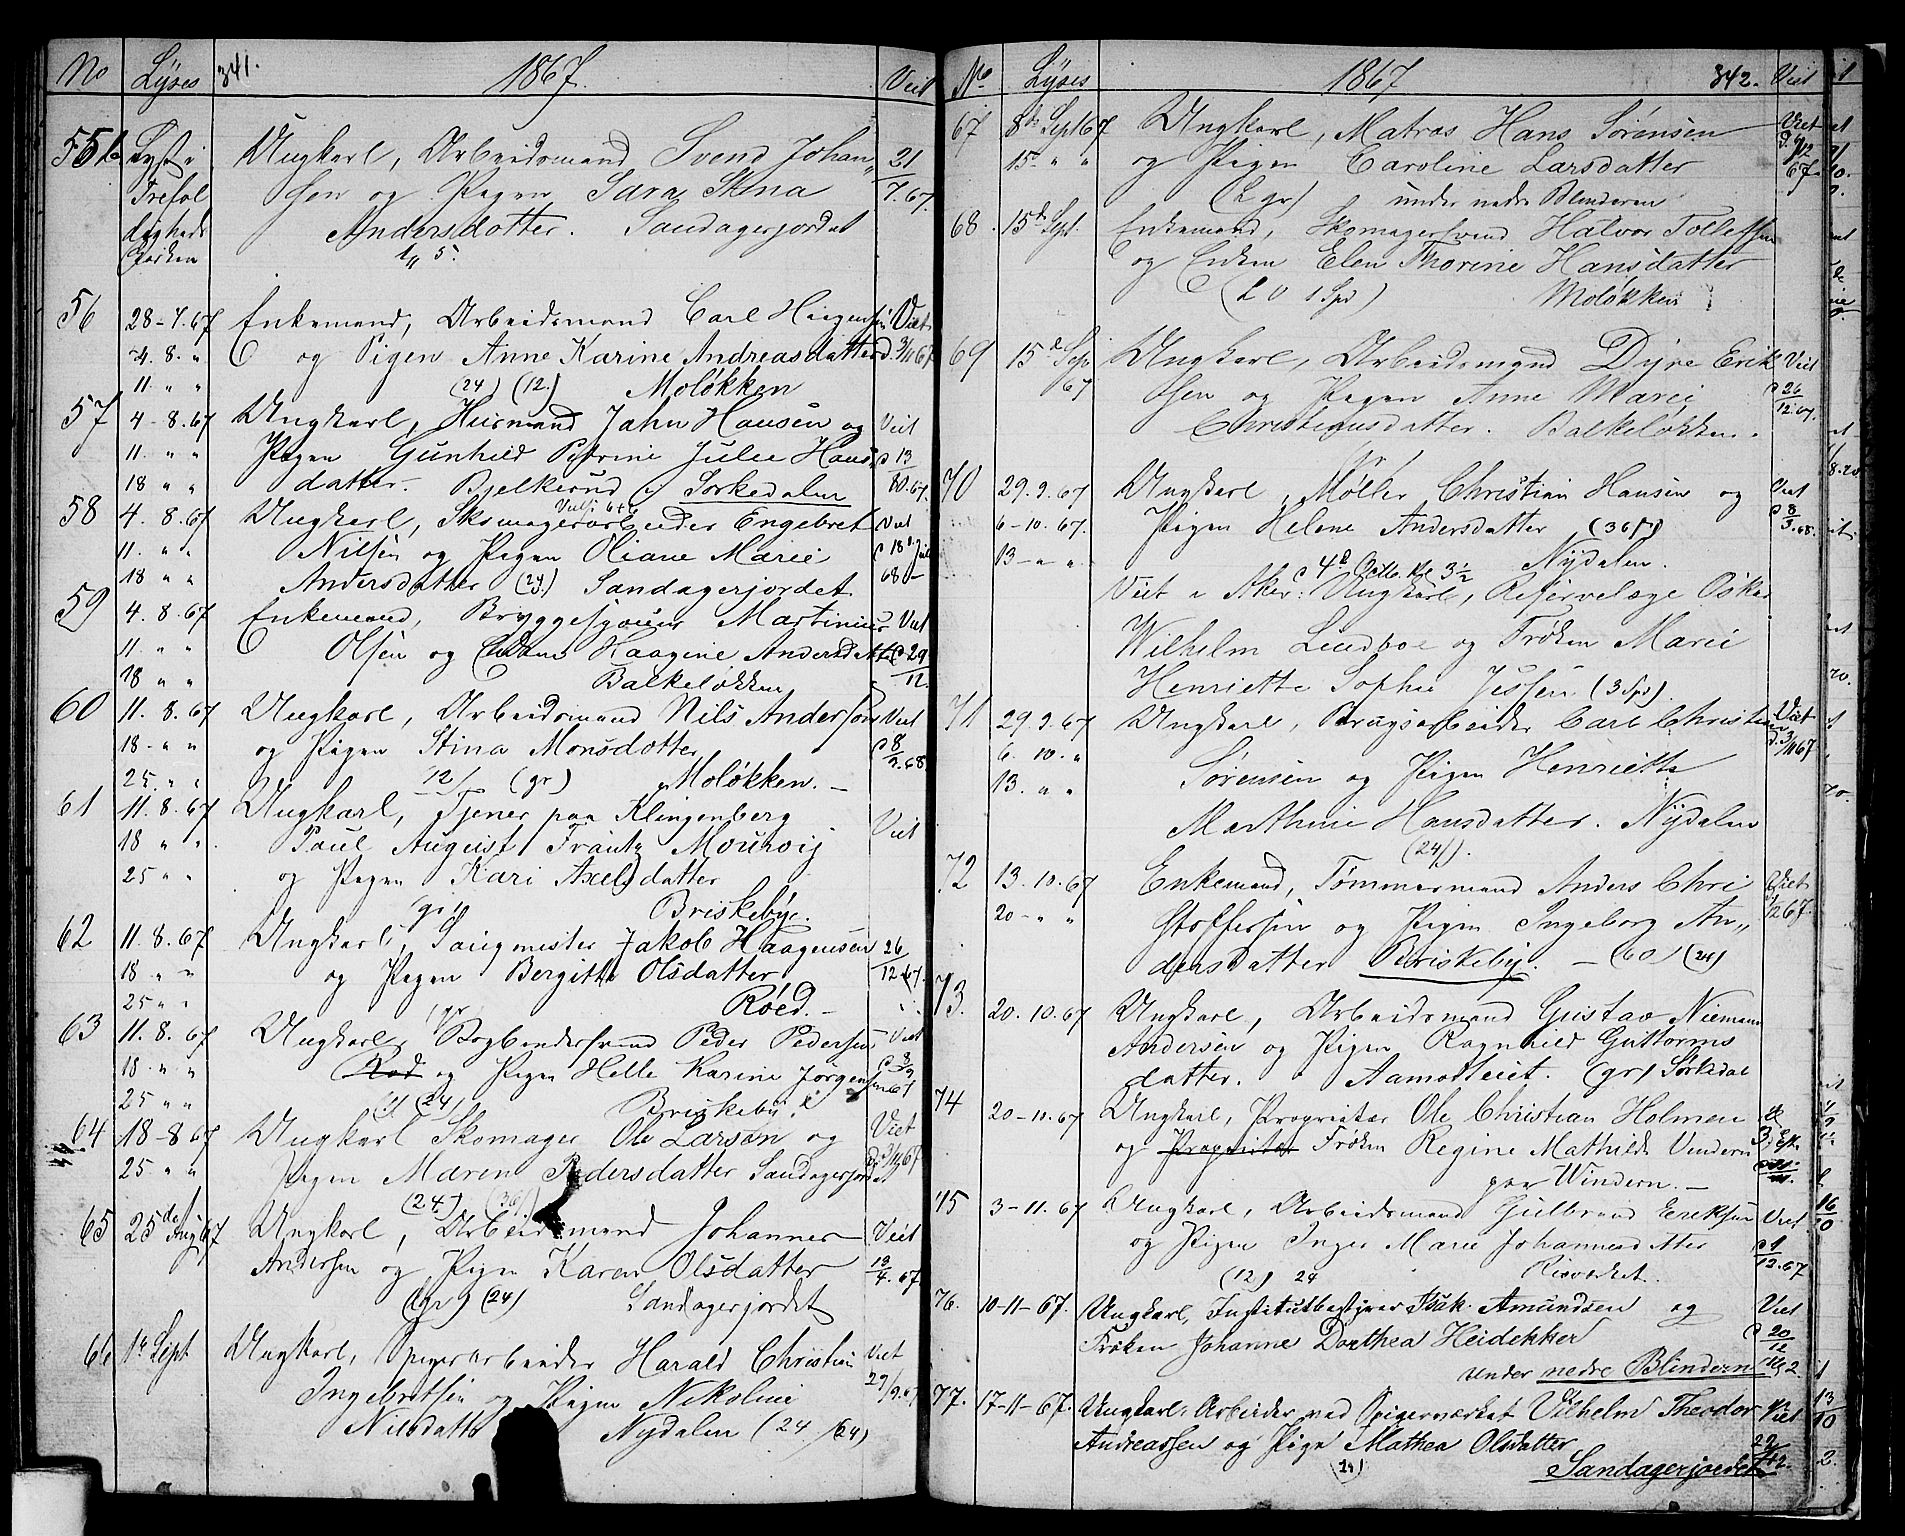 No Lyses 341. 1867. Viet
55 b Lyst i Ungkarl, Arbeidsmand Svend Johan„ 21/7.67.
Trefol sen og Pigen Sara Stina
digheds Andersdotter. Sandagerjordet
Kirken 1„ 5.
56 28-7.67 Enkemand, Arbeidsmand Carl Haagensen Viet
4. 8. „ og Pigen Anne Karine Andreasdatter d. 3/11 67
11. „ „ (24) (12.) Moløkken
57 4-8.67 Ungkarl, Husmand Jahn Hansen og Viet
11. „ „ Pigen Gunhild Petrine Julie Hans„ d 13/10.67.
18 „ „ datter. Bjelkerud i Sørkedalen
58 4. 8.67 Ungkarl, Skomagerarbeider Engebret Viet
11. „ „ Nilsen og Pigen Oliane Marie d 18 Juli
18 „ „ Andersdatter (24) Sandagerjordet 68-
59 4. 8.67 Enkemand, Bryggesvend Martinius Viet
11. „ „ Olsen og Enken Haagine Andersdatter d 29/12.
18 „ „ Balkeløkken
60 11. 8.67 Ungkarl, Arbeidsmand Nils Anderson Viet
18- „ „ og Pigen Stina Monsdotter d 8/9.68
25. „ „ 12/ (gr) Moløkken.-
61 11. 8.67 Ungkarl, Tjener paa Klingenberg Viet
18 „ „ Paul August Frantz
25 „ „ og Pigen Kari Axelsdatter
gr Briskeby.
62 11. 8. 67 Ungkarl, Saugmester Jakob Haagensen 26/12 67.
18 „ „ og Pigen Bergitte Olsdatter
25 „ „ Røed.-
63 11. 8. 67 Ungkarl, Bogbindersvend Peder Pedersen Viet
18. „ „ og Pigen Helle Karine Jørgensen d 8/9 67
25 „ „ (24) Briskeby.
64 18-8 67 Ungkarl Skomager Ole Larsen og Viet
25. „ „ Pigen Maren Pedersdatter Sandagerjordet d. 3/11 67
(24) (36)
65 25de Aug 67 Ungkarl, Arbeidsmand Johannes Viet
Andersen og Pigen Karen Olsdatter 13/4.67.
(gr) (24) Sandagerjordet
66 1e Sept Ungkarl, Spigerarbeider Harald Christian Viet
Ingebretsen og Pigen Nikoline 29/9.67
Nilsdatter Nydalen (24 (24)
No Lyses 1867 342. Viet
67 8de Sept 67 Ungkarl, Matros Hans Sørensen Viet
15- „ „ og Pigen Caroline Larsdatter d. 9/12 67.
(2 gr) under nedre Blinderen
68. 15de Sept. Enkemand, Skomagersvend Halvor Tollefsen
og Enken Elen Thorine Hansdatter
(20 1 Spd) Moløkken
69 15de Sep 67 Ungkarl, Arbeidsmand Dyre Erik Viet
sen og Pigen Anne Marie d 26/12 67.
Christiansdatter. Balkeløkken.
70 29. 9. 67 Ungkarl, Møller Christian Hansen og Viet
6-10. 67. Pigen Helene Andersdatter (36) d 8/3.68.
13- „ „ Nydalen.
d 4de Octb. Kl 3½
Viet i Aker: Ungkarl, Reservelæge Oskar
Wilhelm Lindboe og Frøken Marie
Henriette Sophie Jessen (3 Spd).
71 29. 9. 67 Ungkarl, Brugsarbeider Carl Christian Viet
6. 10. „ Sørensen og Pigen Henriette d. 3/11 67
13. „ „ Marthine Hansdatter. Nydalen
(24).
72 13. 10. 67 Enkemand, Tømmermand Anders Chri Viet
20- „ „ stoffersen og Pigen Ingeborg An„ 12 67.
dersdatter Briskeby. - (60) (24)
73. 20. 10. 67 Ungkarl, Arbeidsmand Gustav Niemann
Andersen og Pigen Ragnhild Guttorms
datter. Aamotteiet. (gr) Sørkedal
74 20-10. 67 Ungkarl, Proprietær Ole Christian Holmen
og Proprietær Frøken Regine Mathilde Vindern
paa Windern.-
75 3-11. 67 Ungkarl, Arbeidsmand Gulbrand Eriksen Viet
og Pigen Inger Marie Johannesdatter d 1/12.67
(12) 24 Risværket.
76. 10-11-67. Ungkarl, Institutbestyrer Isak Amundsen og Viet
Frøken Johanne Dorthea Heidekker d 20/12
under nedre Blindern Kl. 2
77. 17-11-67. Ungkarl, Arbeider ved Spigerværket Vilhelm Theodor Viet
Andreassen og Pige Mathea Olsdatter 22/12.
24) Sandagerjordet